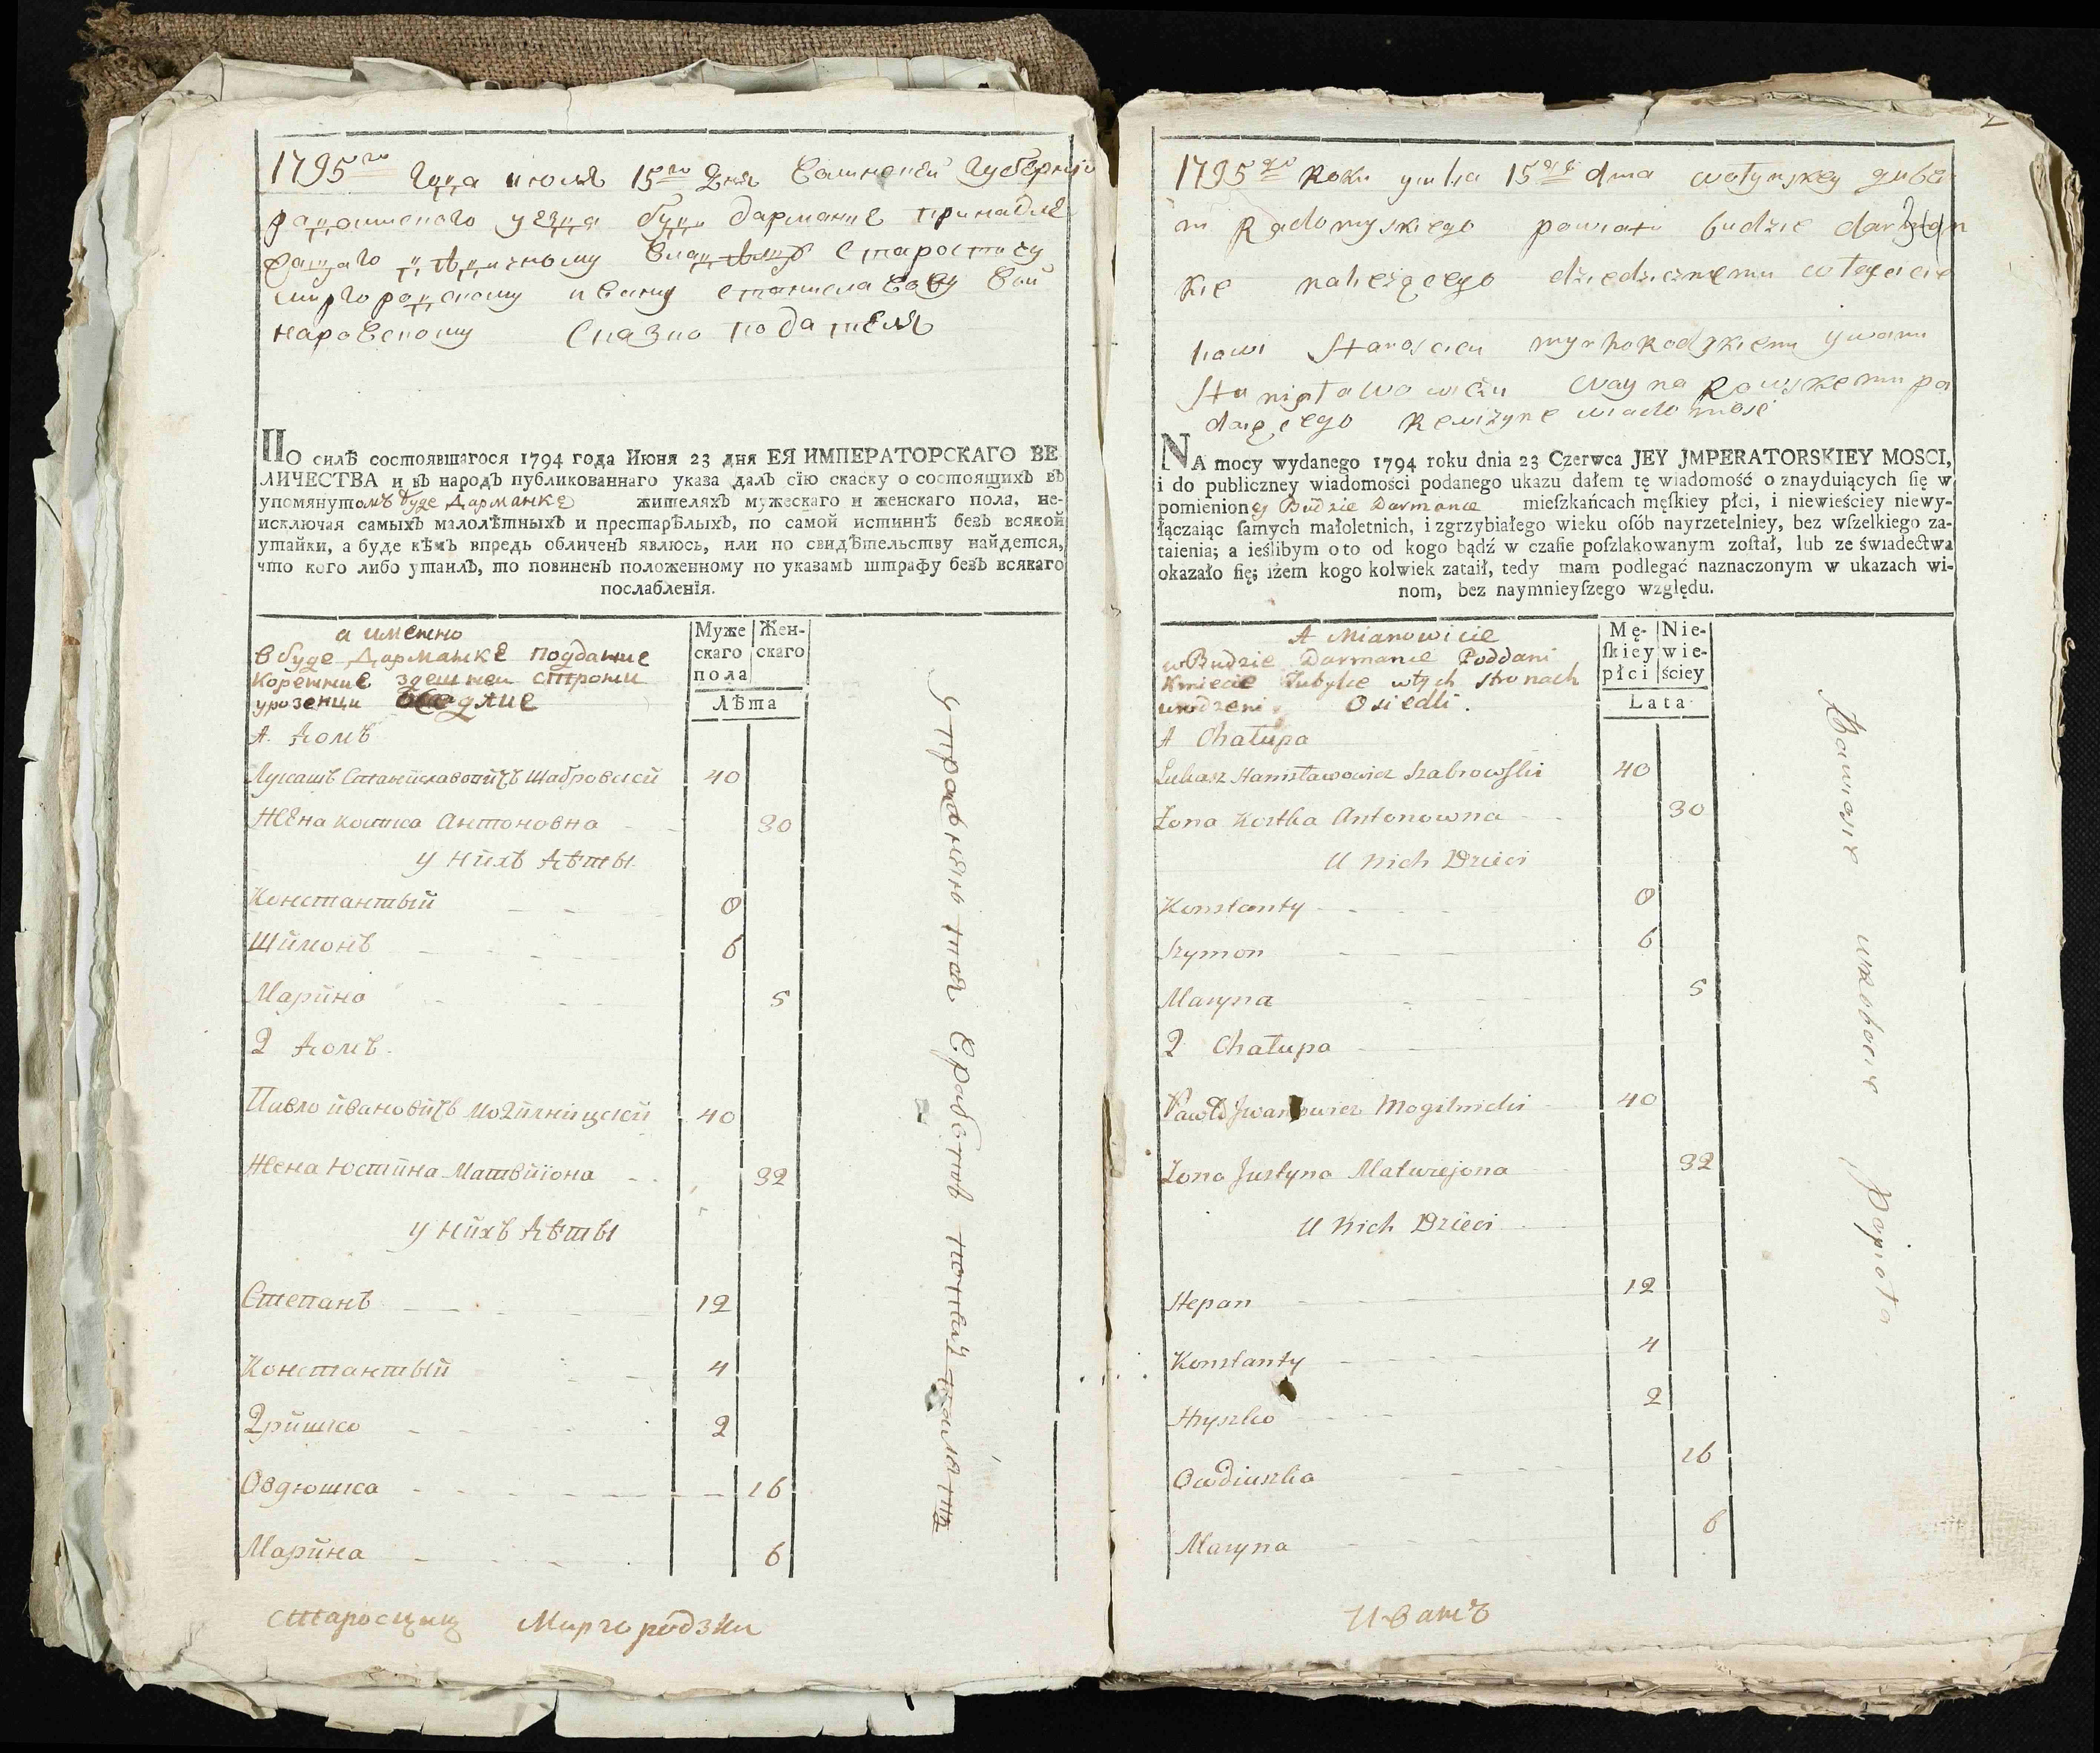 1795го года июля 15го дня Волинской губернiи
радомского уезда буди дарманке принадле
жащаго дѣдичному владѣлцу старостичу
миргородскому ивану станиславову вой
наровскому сказко подателя
ПО силѣ состоявшагося 1794 года Июня 23 дня ЕЯ ИМПЕРАТОРСКАГО ВЕ
ЛИЧЕСТВА и въ народъ публикованнаго указа далъ сїю скаску о состоящихъ въ
упомянутомъ буде Дарманке жителяхъ мужескаго и женскаго пола, не-
исключая самыхъ малолѣтныхъ и престарѣлыхъ, по самой истиннѣ безъ всякой
утайки, а буде кѣмъ впредь обличенъ явлюсь, или по свидѣтельству найдется,
что кого либо утаилъ, то повиненъ положенному по указамъ штрафу безъ всякаго
послабленїя.
а именно
в буде Дарманке подание
корение здешнеи строни
урозенци оседлие
Муже
скаго
пола
Жен-
скаго
Лѣта
А. Домъ
Лукашъ Станиславовичъ Шабровский 40
Жена костка Антоновна 30
у нихъ Дѣти
Константый 0
Шимонъ 6
Марина 5
2 Домъ
Павло ивановичъ могилницкий 40
Жена Юстина Матвийона 32
у нихъ Дѣти
Степанъ 12
Константый 4
Гришко 2
Овдюшка 16
Марина 6
Миргородзки
2
1795go Roku yulia 15go dnia wołynskey gube
ni Radomyskiego powiatu budzie darman
kie należącego dziedzicznemu włascicie
lowi Staroscicu myrhorodzkiemu ywanu
Stanisławowiczu Woynarowskiemu po
daiącego Rewizyne wiadomosc
NA mocy wydanego 1794 roku dnia 23 Czerwca JEY JMPERATORSKIEY MOSCI,
i do publiczney wiadomości podanego ukazu dałem tę wiadomość o znayduiących ſię w
pomienioney Budzie Darmance mieſzkańcach męſkiey płci, i niewieściey niewy-
łączaiąc ſamych małoletnich, i zgrzybiałego wieku oſób nayrzetelniey, bez wſzelkiego za-
taienia; a ieślibym o to od kogo bądź w czaſie poſzlakowanym zoſtał, lub ze świadectwa
okazało ſię; iżem kogo kolwiek zataił, tedy mam podlegać naznaczonym w ukazach wi-
nom, bez naymnieyſzego względu.
A Mianowicie
w Budzie Darmance Poddani
Kmiecie Tubylce w tych stronach
urodzeni Osiedli.
Mę-
ſkiey
płci
Nie-
wie-
ściey
Lata
A Chałupa
Łukasz Stanisławowicz Szabrowski 40
Żona Kostka Antonowna 30
U nich Dzieci
Konstanty 0
Szymon 6
Maryna 5
2 Chałupa
Paweł Jwanowicz Mogilnicki 40
Żona Justyna Matwiejona 32
U nich Dzieci
Stepan 12
Konstanty 4
Hryszko 2
Owdiuszka 16
Maryna 6
Иванъ